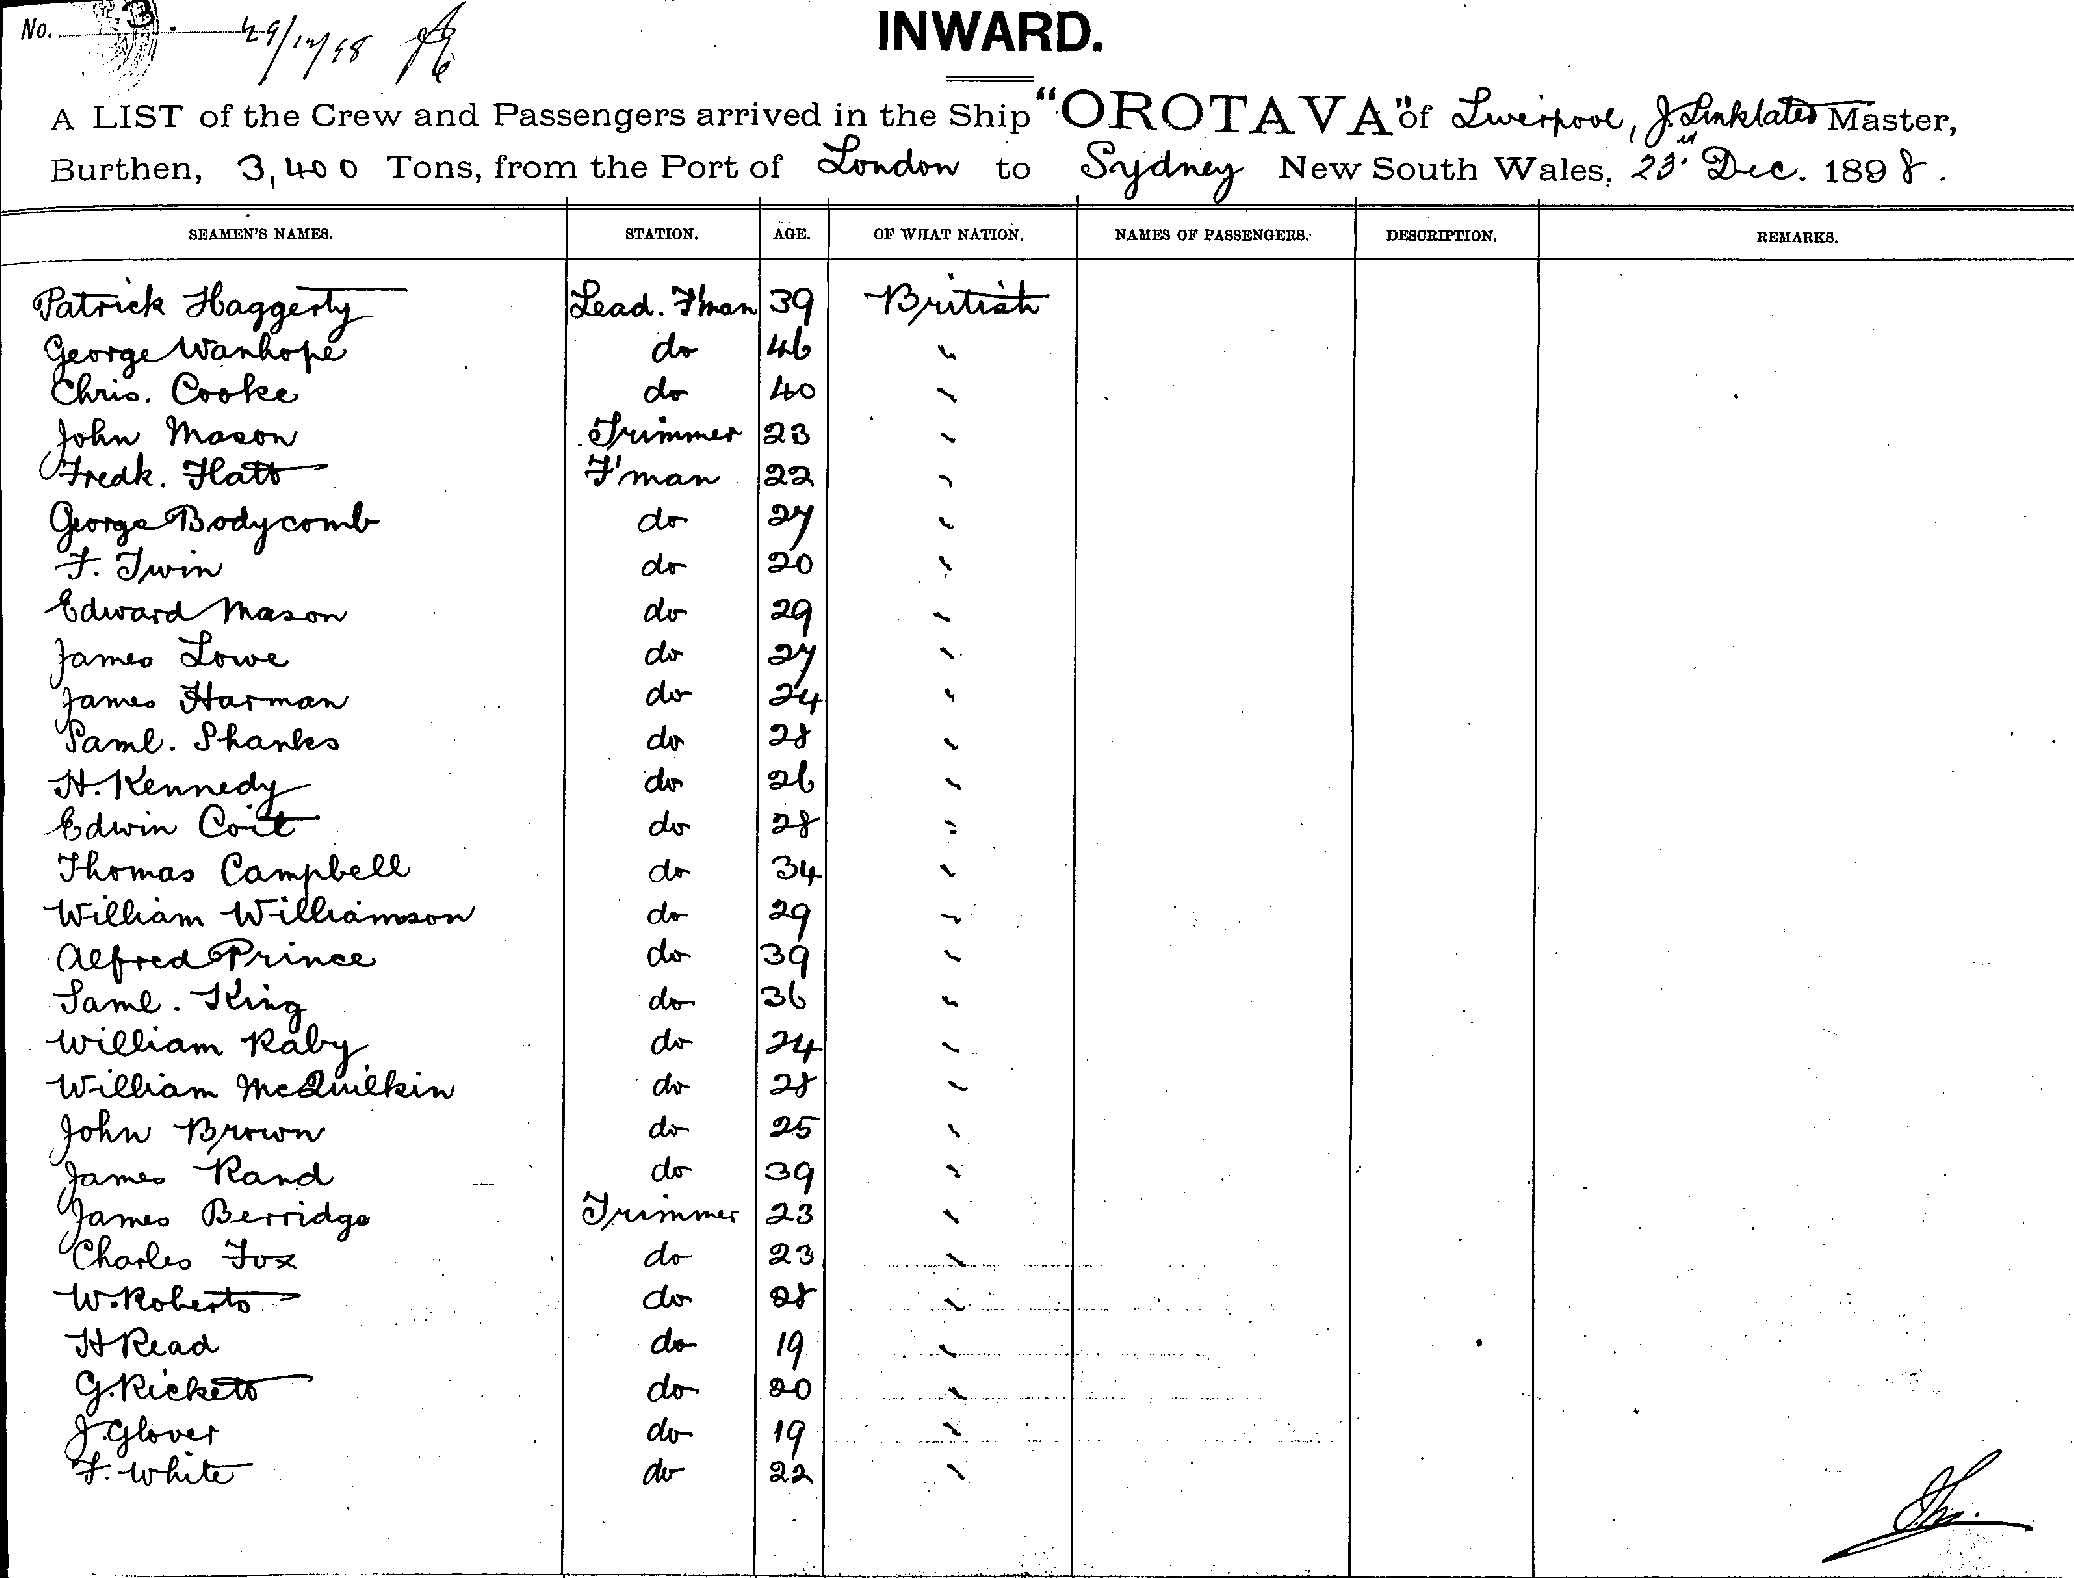 No. 3. 29/12/98
INWARD.
A LIST of the Crew and Passengers arrived in the Ship "OROTAVA" of Liverpool, J. Linklater Master,
Burthen, 3,400 Tons, from the Port of London to Sydney New South Wales, 23rd Dec. 1898.
SEAMEN'S NAMES. STATION. AGE. OF WHAT NATION. NAMES OF PASSENGERS. DESCRIPTION. REMARKS.
Patrick Haggerty Lead. F'man 39 British
George Wanhope do 46 "
Chris. Cooke do 40 "
John Mason Trimmer 23 "
Fredk. Flatt F'man 22 "
George Bodycomb do 27 "
F. Twin do 20 "
Edward Mason do 29 "
James Lowe do 27 "
James Harman do 24 "
Saml. Shanks do 28 "
H. Kennedy do 26 "
Edwin Coit do 28 "
Thomas Campbell do 34 "
William Williamson do 29 "
Alfred Prince do 39 "
Saml. King do 36 "
William Raby do 24 "
William McQuilkin do 28 "
John Brown do 25 "
James Rand do 39 "
James Berridge Trimmer 23 "
Charles Fox do 23 "
W. Roberts do 28 "
H Read do 19 "
G. Ricketts do 20 "
J. Glover do 19 "
F. White do 22 "